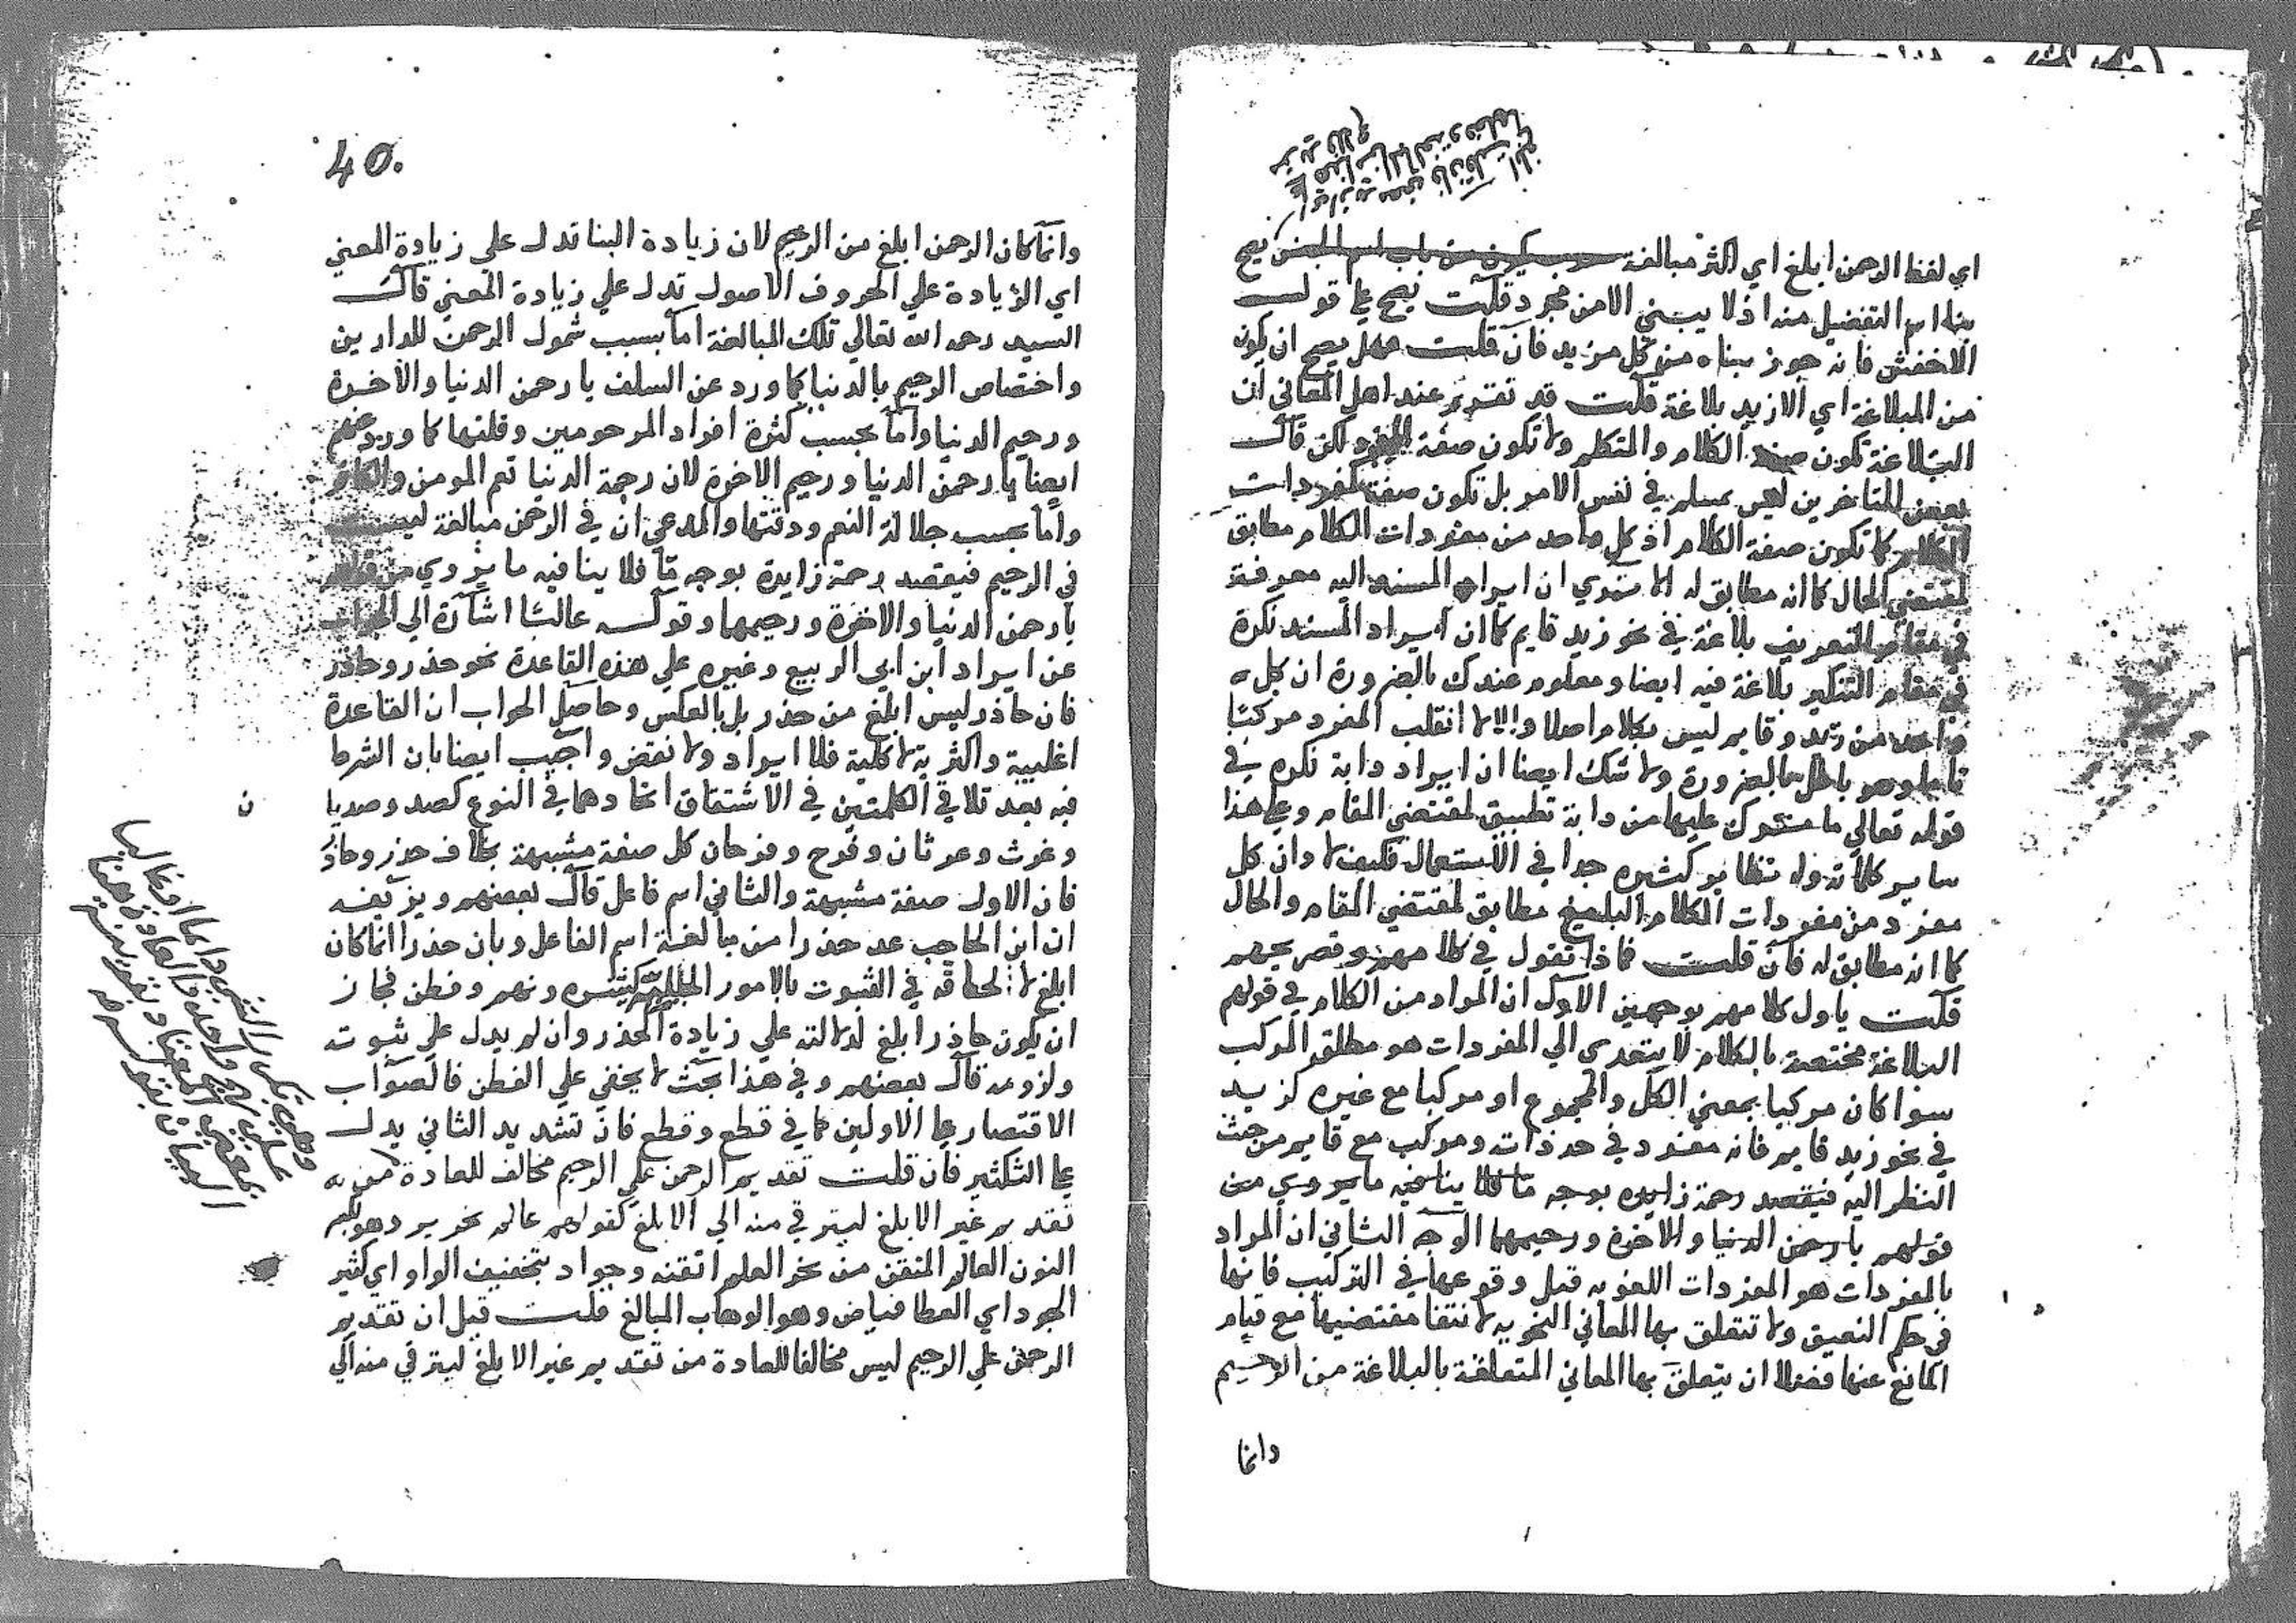 اي لفظ الرحمن ابلغ اي اكثر مبالغة يصح
بناء اسم التفضيل منه اذ لا يبني الا من مجرد قلت يصح علي قول
الاخفش فانه جوز بناه من كل مزيد فان قلت هل يصح ان يكون
من المبلاغة اي الازيد بلاغة قلت قد تقرر عند اهل المعاني ان
البلاغة تكون صفة الكلام والمتكلم ولا تكون صفة المفرد لكن قال
بعض المتاخرين ليس بمسلم في نفس الامر بل تكون صفة لمفردات
الكلام كما تكون صفة الكلام اذ كل واحد من مفردات الكلام مطابق
لمقتضي الحال كما انه مطابق له الا تري ان ايراد المسند اليه معرفة
في مقام التعريف بلاغة في نحو زيد قايم كما ان ايراد المسند نكرة
في مقام التنكير بلاغة فيه ايضا ومعلوم عندك بالضرورة ان كل
واحد من زيد وقايم ليس بكلام اصلا والا لا انقلب المفرد مركبا
تاما وهو باطل بالضرورة ولا شك ايضا ان ايراد دابة نكره في
قوله تعالي ما ترك عليها من دابة تطبيق لمقتضي المقام وعلي هذا
ساير كلاته وله نظاير كثيره جدا في الاستعمال فكيف لا وان كل
مفرد من مفردات الكلام البليغ مطابق لمقتضي المقام والحال
كما انه مطابق له فان قلت فماذا تقول في كلامهم وتصريحهم
قلت ياول كلامهم بوجهين الاول ان المراد من الكلام في قولهم
البلاغة مختصة بالكلام لا يتعدي الي المفردات هو مطلق المركب
سوا كان مركبا بمعني الكل والمجموع او مركبا مع غيره كزيد
في نحو زيد قايم فانه مفرد في حد ذاته ومركب مع قايم من حيث
النظر اليه فيقصد رحمة زايده بوجه ما فلا ينافيه ما يروي من
قولهم يا رحمن الدنيا والاخرة ورحيمهما الوجه الثاني ان المراد
بالمفردات هو المفردات اللغويه قبل وقوعها في التركيب فانها
في حكم النعيق ولا تتعلق بها المعاني النحويه لانتفا مقتضيها مع قيام
المانع عنها فضلا ان يتعلق بها المعاني المتعلقة بالبلاغة من الرحيم
وانما
40
وانما كان الرحمن ابلغ من الرحيم لان زيادة البنا تدل علي زيادة المعني
اي الزيادة علي الحروف الاصول تدل علي زيادة المعني قال
السيد رحمه الله تعالي تلك المبالغة اما بسبب شمول الرحمن للدارين
واختصاص الرحيم بالدنيا كما ورد عن السلف يا رحمن الدنيا والاخرة
ورحيم الدنيا واما بحسب كثرة افراد المرحومين وقلتها كما ورد عنهم
ايضا يا رحمن الدنيا ورحيم الاخرة لان رحمة الدنيا تعم المومن والكافر
واما بحسب جلالة النعم ودقتها والمدعي ان في الرحمن مبالغة ليست
في الرحيم فيقصد رحمة زايدة بوجه ما فلا ينافيه ما يروي من قولهم
يا رحمن الدنيا والاخرة ورحيمهما وقوله غالبا اشارة الي الجواب
عن ايراد ابن ابي الربيع وغيره علي هذه القاعدة نحو حذر وحاذر
فان حاذر ليس ابلغ من حذر بل بالعكس وحاصل الجواب ان القاعدة
اغلبية واكثرية لا كلية فلا ايراد ولا نقض واجيب ايضا بان الشرط
فيه بعد تلاقي الكلمتين في الاشتقاق اتحادهما في النوع كصد وصديا
وغرث وغرثان وفرح وفرحان كل صفة مشبهة بخلاف حذر وحاذر
فان الاول صفة مشبهة والثاني اسم فاعل قال بعضهم ويزيفه
ان ابن الحاجب عد حذرا من مبالغة اسم الفاعل وبان حذرا انما كان
ابلغ لالحاقه في الثبوت بالامور الجبلية كشره ونهم وفطن فجاز
ان يكون حاذر ابلغ لدلالته علي زيادة الحذر وان لم يدل علي ثبوته
ولزومه قال بعضهم وفي هذا بحث لا يخفي علي الفطن فالصواب
الاقتصار علي الاولين كما في قطع وقطع فان تشديد الثاني يدل
علي التكثير فان قلت تقديم الرحمن علي الرحيم مخالف للعادة من
تقديم غير الابلغ ليترقي منه الي الابلغ كقولهم عالم نحرير وهو بكسر
النون العالم المتقن من نحر العلم اتقنه وجواد بتخفيف الواو اي كثير
الجود اي العطا فياض وهو الوهاب المبالغ قلت قيل ان تقديم
الرحمن علي الرحيم ليس مخالفا للعادة من تقديم غير الابلغ ليترقي منه الي